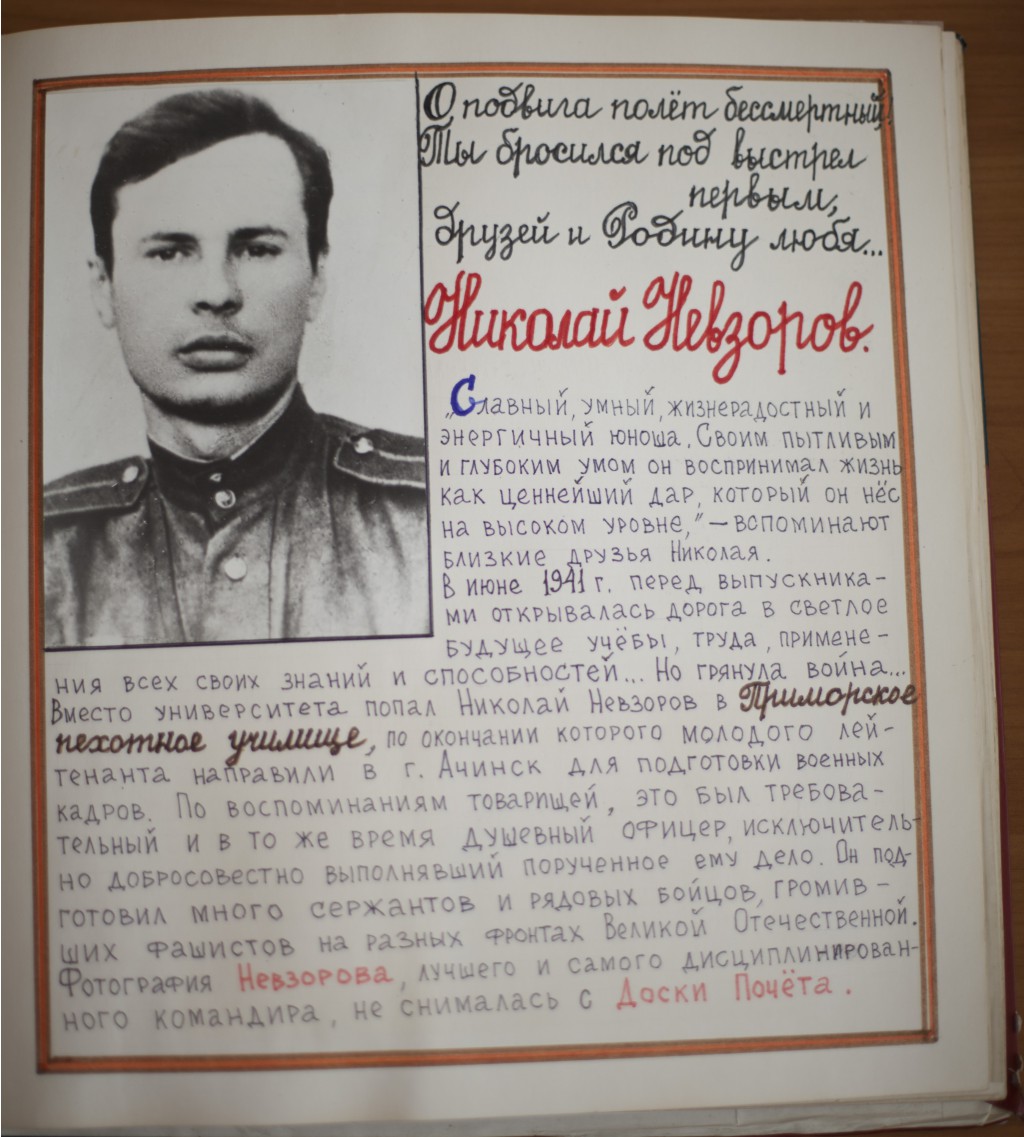 О подвига полёт бессмертный!
Ты бросился под выстрел
первым,
друзей и Родину любя...
Николай Невзоров.
„Славный, умный, жизнерадостный и
энергичный юноша. Своим пытливым
и глубоким умом он воспринимал жизнь
как ценнейший дар, который он нёс
на высоком уровне," – вспоминают
близкие друзья Николая.
В июне 1941 г. перед выпускника-
ми открывалась дорога в светлое
будущее учёбы, труда, примене-
ния всех своих знаний и способностей... Но грянула война...
Вместо университета попал Николай Невзоров в Приморское
пехотное училище, по окончании которого молодого лей-
тенанта направили в г. Ачинск для подготовки военных
кадров. По воспоминаниям товарищей, это был требова-
тельный и в то же время душевный офицер, исключитель-
но добросовестно выполнявший порученное ему дело. Он под-
готовил много сержантов и рядовых бойцов, громив-
ших фашистов на разных фронтах Великой Отечественной.
Фотография Невзорова, лучшего и самого дисциплинирован-
ного командира, не снималась с Доски Почёта.